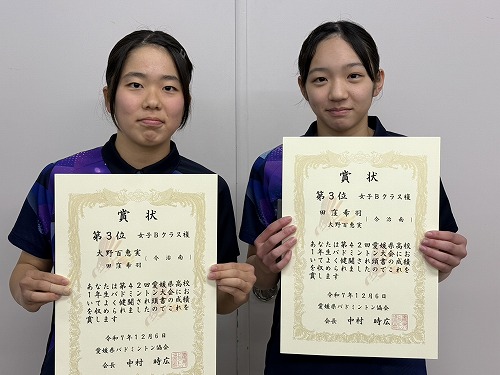 賞状
第3位 女子Bクラス複
大野百恵実
田窪希羽
(今治南)
あなたは第42回愛媛県高校
1年生バドミントン大会にお
いてよく健闘され頭書の成績
を収められましたのでこれを
賞します
令和7年12月6日
愛媛県バドミントン協会
会長 中村 時広
賞状
第3位 女子Bクラス複
田窪希羽
大野百恵実
(今治南)
あなたは第42回愛媛県高校
1年生バドミントン大会にお
いてよく健闘され頭書の成績
を収められましたのでこれを
賞します
令和7年12月6日
愛媛県バドミントン協会
会長 中村 時広